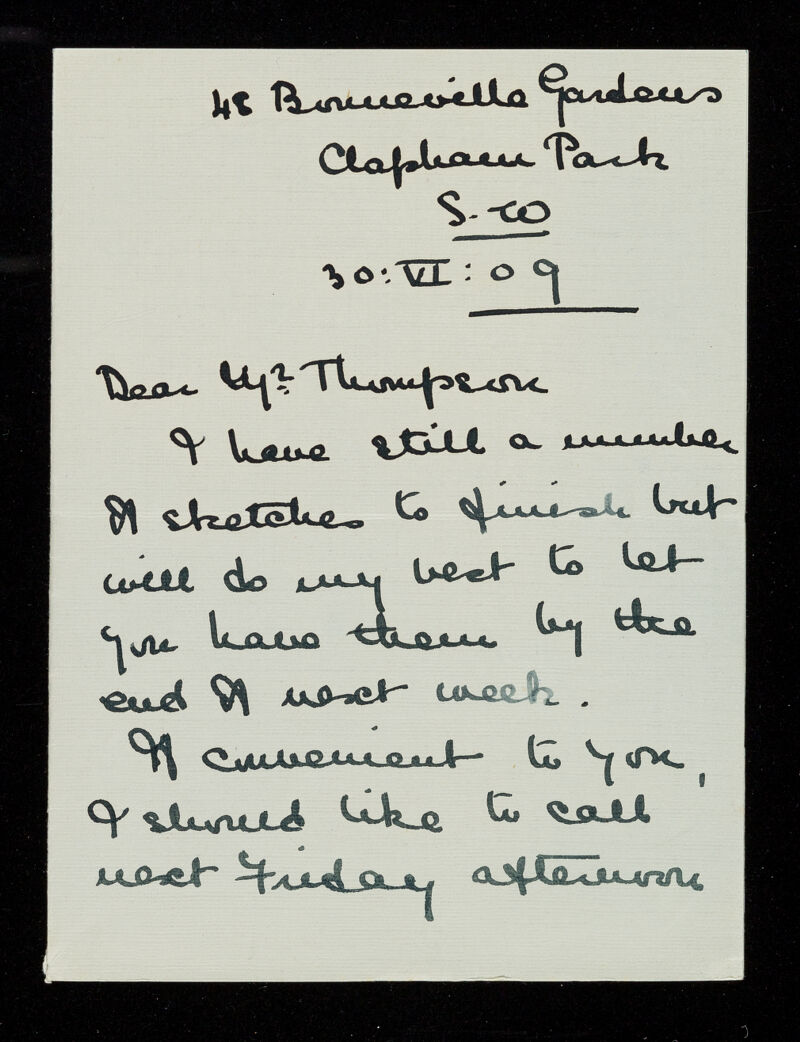 48 Bonneville Gardens
Clapham Park
S.W
30:VI:09
Dear Mr. Thompson
I have still a number
of sketches to finish but
will do my best to let
you have them by the
end of next week.
If convenient to you,
I should like to call
next Friday afternoon